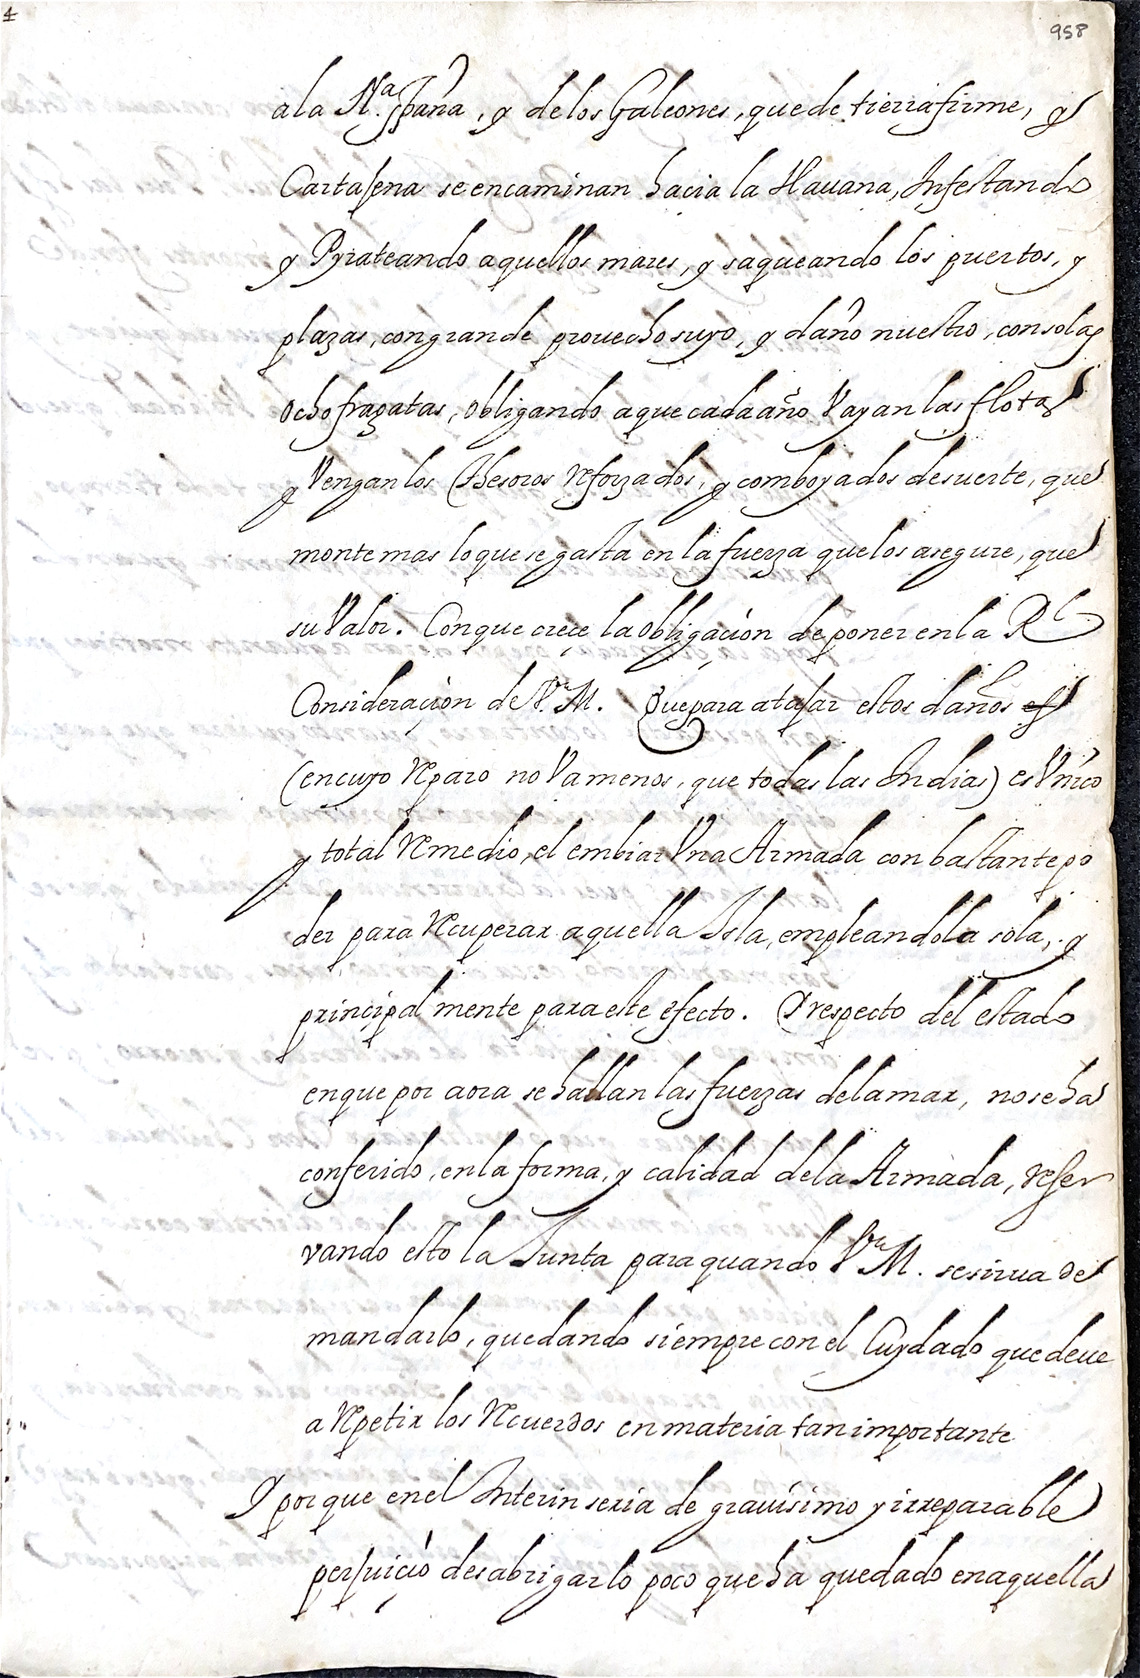 4
958
a la Nª. españa, y de los Galeones, que de tierra firme, y
Cartajena se encaminan hacia la Hauana, Infestando
y Pyrateando aquellos mares, y saqueando los puertos, y
plazas, con grande prouecho suyo, y daño nuestro, con solas
ocho fragatas, obligando a que cada año Vayan las flotas
y Vengan los Thesoros reforzados, y comboyados de suerte, que
monte mas lo que se gasta en la fuerza que los asegure, que
su Valor. Con que crece la obligación de poner en la Rl
Consideración de V.M. Que para atajar estos daños es
(en cuyo reparo no Va menos, que todas las Indias) es Vnico
y total remedio, el embiar Vna Armada con bastante po
der para recuperar aquella Isla, empleandola sola, y
principalmente para este efecto. Y respecto del estado
en que por aora se hallan las fuerzas de la mar, no se ha
conferido, en la forma, y calidad de la Armada, reser
vando esto la Junta para quando V.M. se sirua de
mandarlo, quedando siempre con el Cuydado que deue
a repetir los recuerdos en materia tan importante
Y porque en el Interin seria de grauísimo y irreparable
perjuició desabrigar lo poco que ha quedado en aquella